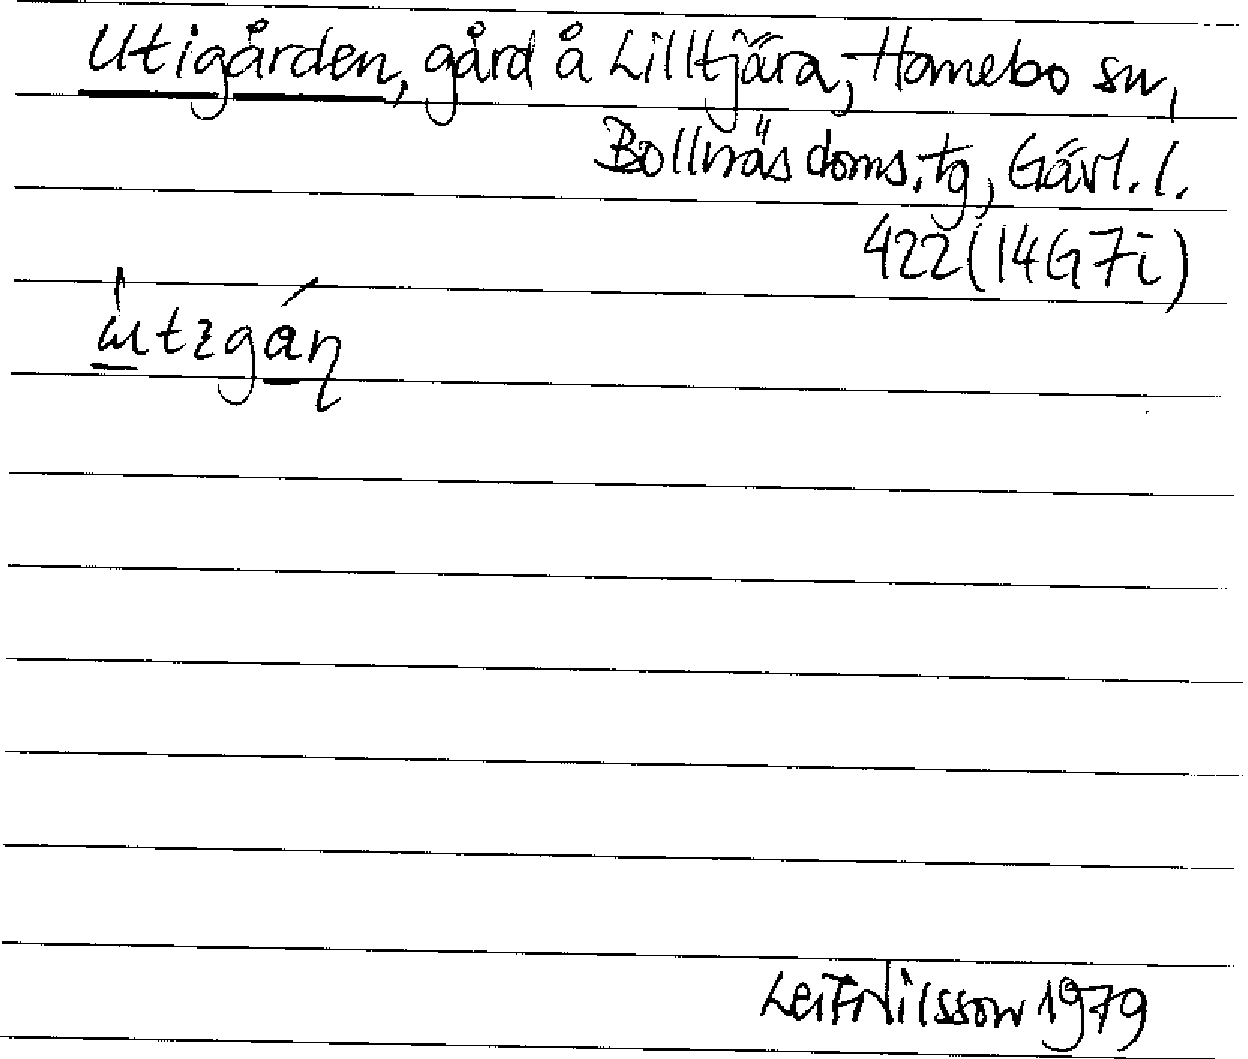 Utigården, gård å Lilltjära, Hamebo sn,
Bollnäs doms.tg, Gävl. l.
422 (14G7i)
Leif Nilsson 1979